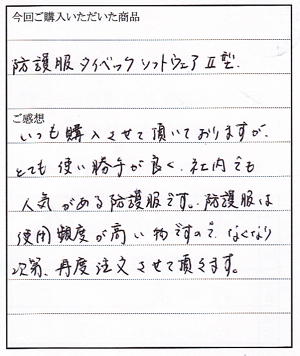 今回ご購入いただいた商品
防護服 タイベックソフトウェアⅡ型.
ご感想
いつも購入させて頂いておりますが、
とても使い勝手が良く、社内でも
人気がある防護服です。防護服は
使用頻度が高い物ですので、なくなり
次第、再度注文させて頂きます。